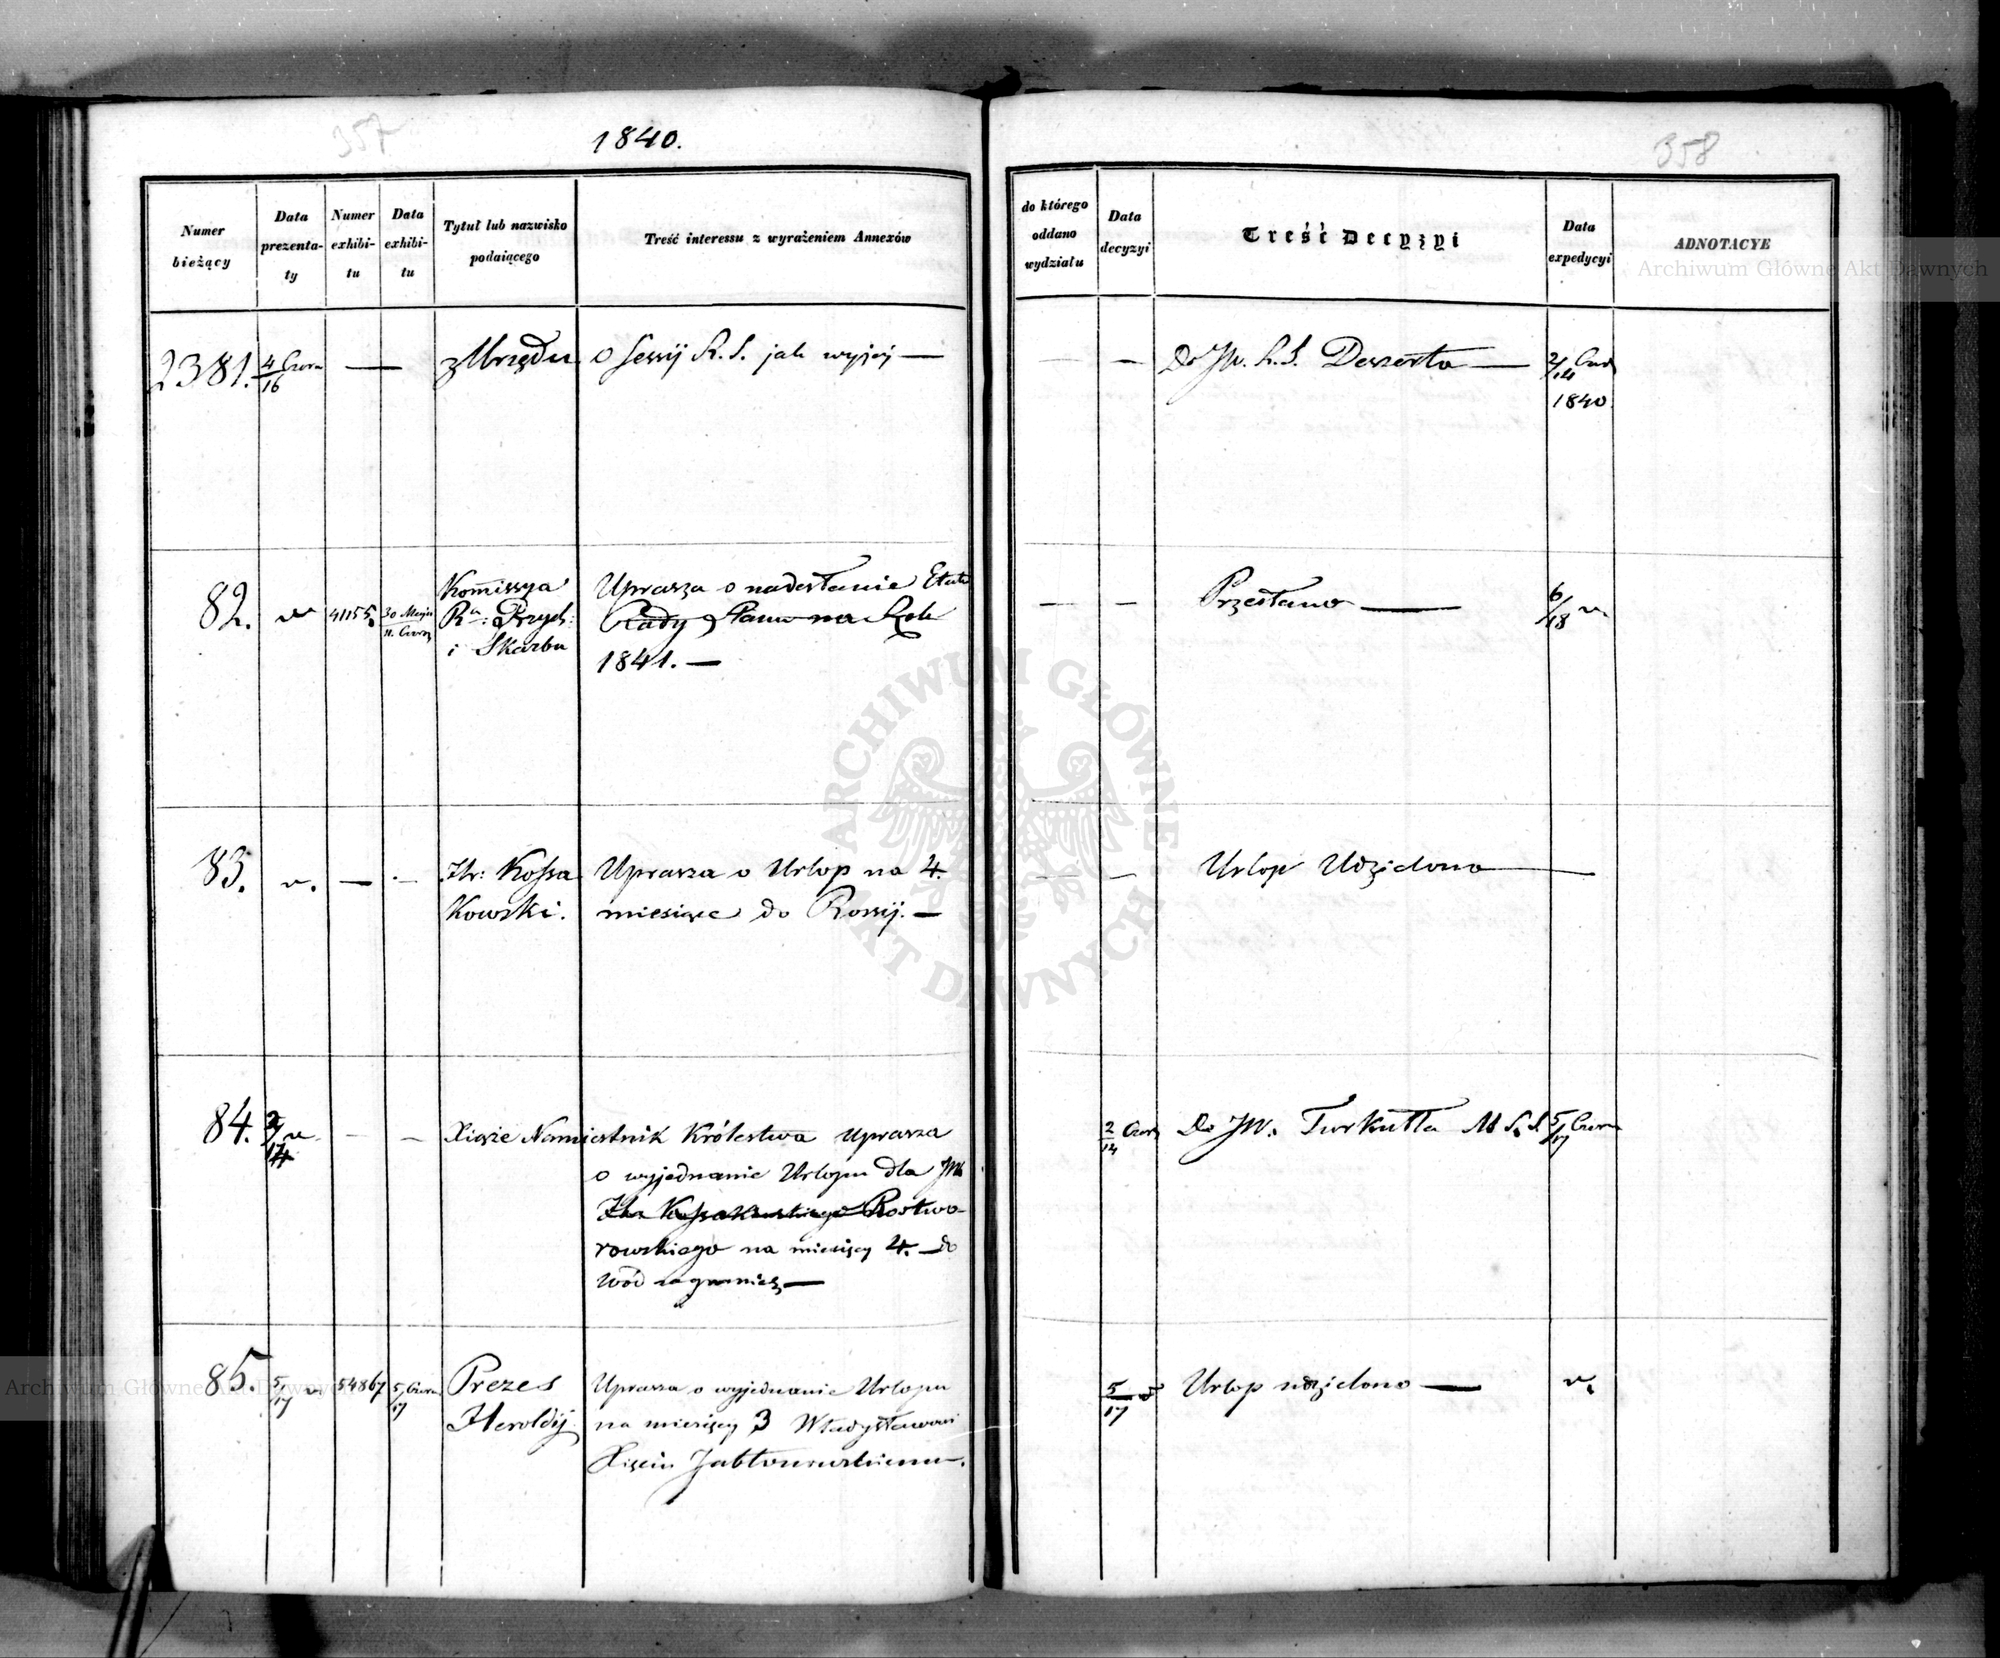 357
1840.
358
Numer bieżący
Data prezentaty
Numer exhibitu
Data exhibitu
Tytuł lub nazwisko podaiącego
Treść interessu z wyrażeniem Annexów
do którego oddano wydziału
Data decyzyi
Treść Decyzyi
Data expedycyi
ADNOTACYE
2381.
4/16 Czerw
—
—
z Urzędu
o Sessij R. S. jak wyjej —
—
—
Do JW. R. S. Deszerta —
2/14 Czer
1840
82.
41155
30 Maja
11. Czerw
Kommissya
Ra: Przych:
i Skarbu
Uprasza o nadesłanie Etatu
Rady Stanu na Rok
1841. —
—
—
Przesłano —
6/18
83.
—
—
Hr: Kossa
Kowski.
Uprasza o Urlop na 4.
miesiące do Rossij. —
—
—
Urlop Udzielono —
84.
2/14
—
—
Xiąże Namiestnik Królestwa uprasza
o wyjednanie Urlopu dla JW
Hr. Kossakowskiego Rostwo-
rowskiego na miesięcy 4. do
Wód zagranicz —
2/14 Czer
Do JW. Turkułła M. S. S.
5/17 Czerw
85.
5/17
54867
5/17 Czerw
Prezes
Heroldij
Uprasza o wyjednanie Urlopu
na miesięcy 3 Władysławowi
Xięciu Jabłonowskiemu.
5/17
Urlop udzielono —
Archiwum Główne Akt Dawnych
ARCHIWUM GŁÓWNE AKT DAWNYCH
Archiwum Główne Akt Dawnych